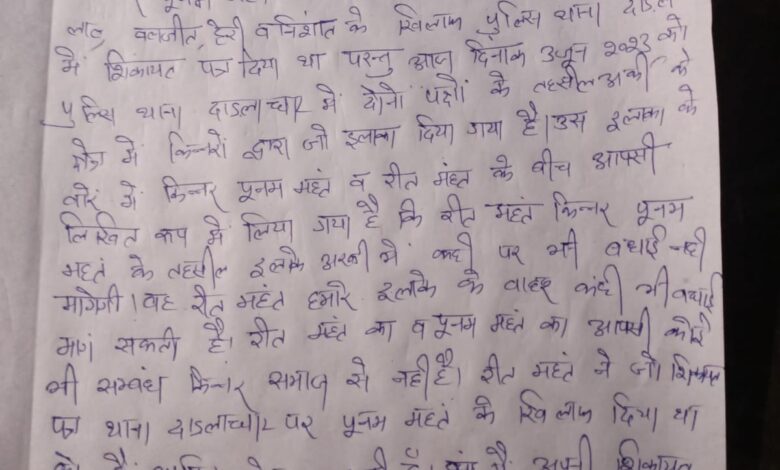 लाटू, बलजीत, हैरी व निशांत के खिलाफ पुलिस थाना
में शिकायत पत्र दिया था परन्तु आज दिनांक 3 जून 2023 को
पुलिस थाना दाडलाघाट में दोनों पक्षों के तहसील अर्की के
क्षेत्र में किन्नरों द्वारा जो इलाका दिया गया है। उस इलाका के
बारे में किन्नर पूनम महंत व रीत महंत के बीच आपसी
लिखित रूप में लिया गया है कि रीत महंत किन्नर पूनम
महतं के तहसील इलाके अरकी में कही पर भी बधाई नही
मागेगी। वह रीत महंत हमारे इलाके के वाहर कंही भी बधाई
मागं सकती है। रीत महंत का व पूनम महंत का आपसी कोई
भी सम्बंध किन्नर समाज से नहीं है। रीत महतं ने जो शिकायत
पत्र थाना दाडलाघाट पर पूनम महतं के खिलाफ दिया था
अपनी शिकायत